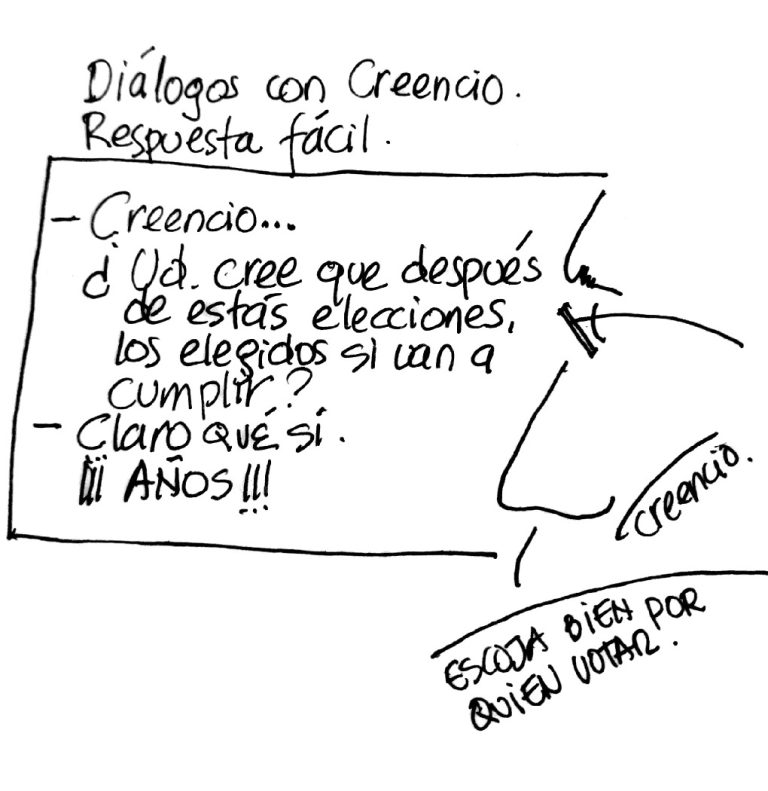 Diálogos con Creencio.
Respuesta fácil.
- Creencio...
¿Ud. cree que después
de estás elecciones,
los elegidos si van a
cumplir?
- Claro qué sí.
¡¡¡ AÑOS !!!
creencio.
ESCOJA BIEN POR
QUIEN VOTAR.